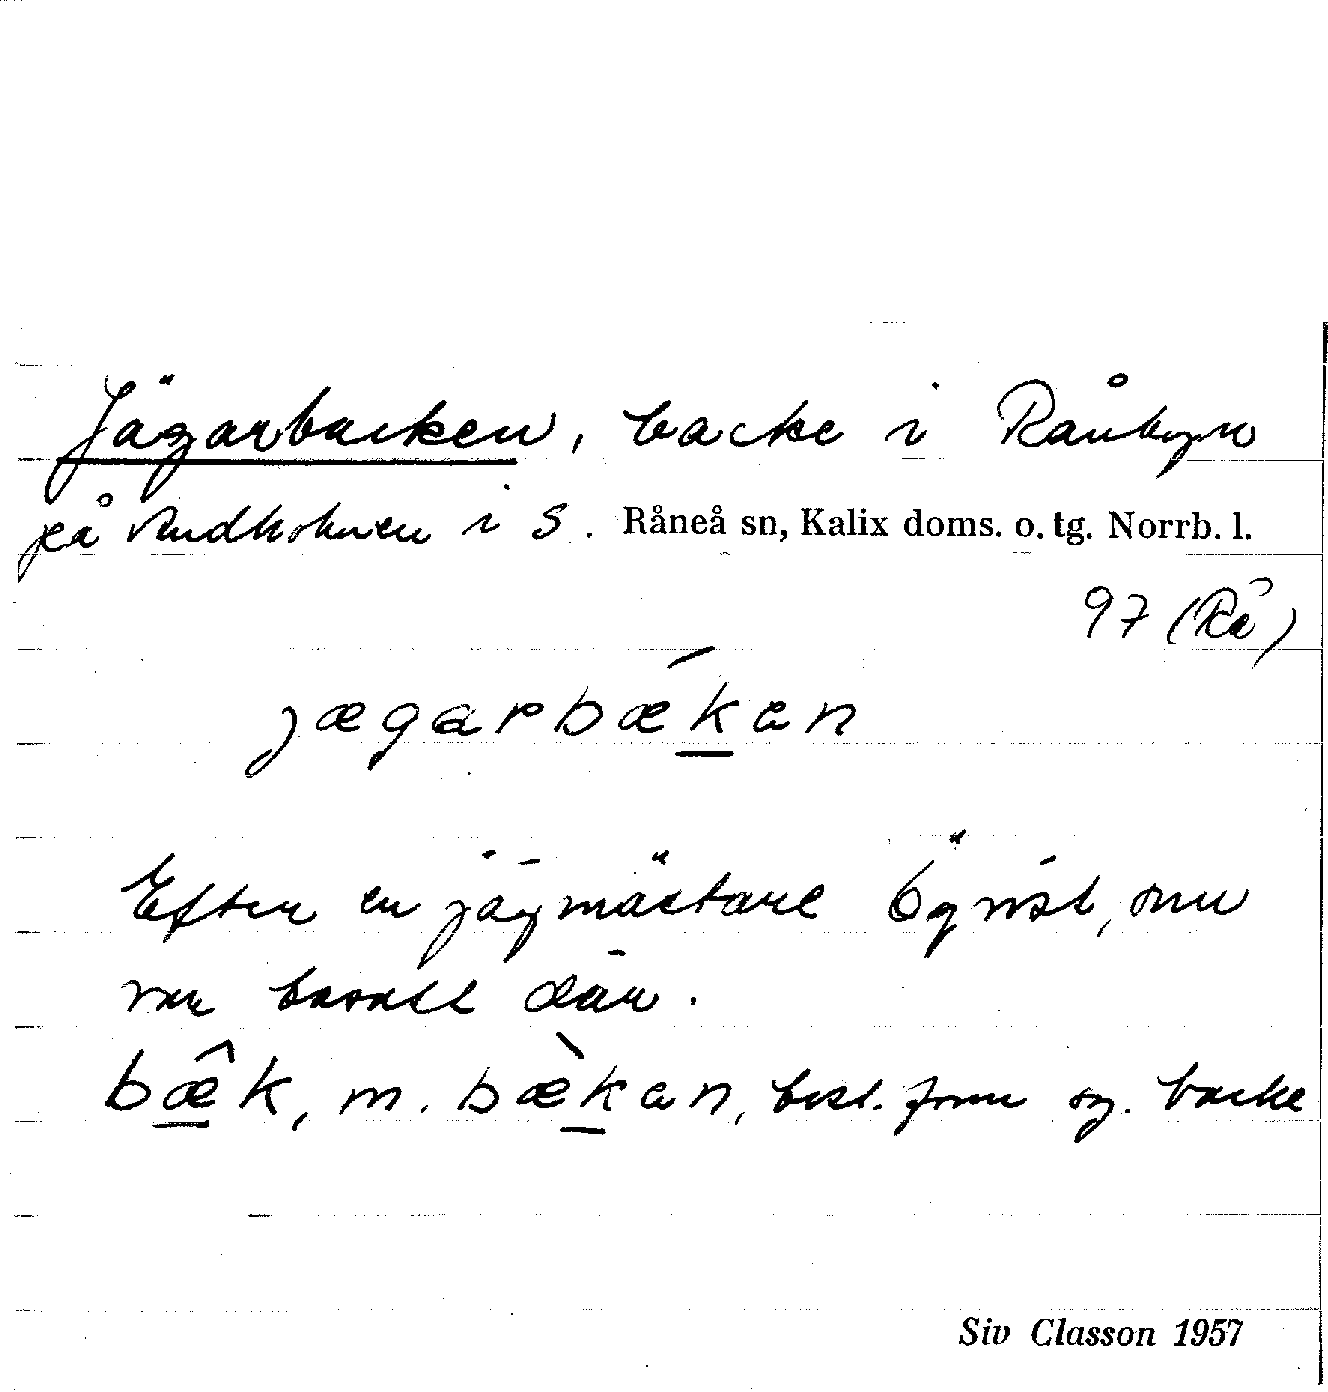 Jägarbacken, backe i Rånbyn
på Sundholmen i S. Råneå sn, Kalix doms. o. tg. Norrb. l.
97 (Rå)
jægarbǽkan
Efter en jägmästare Ögvist, som
var bosatt där.
bæ̂k, m. bæ̀kan, best. form sg. backe
Siv Classon 1957